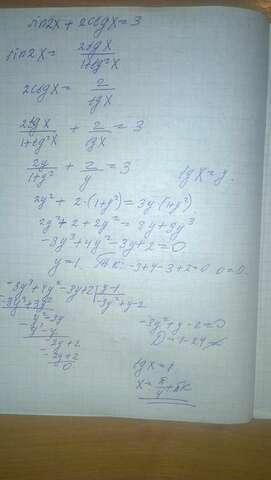 sin2x + 2ctgx = 3
sin2x = 2tgx / 1+tg²x
2ctgx = 2 / tgx
2tgx / 1+tg²x + 2 / tgx = 3
2y / 1+y² + 2 / y = 3 tgx = y.
2y² + 2·(1+y²) = 3y(1+y²)
2y² + 2 + 2y² = 3y + 3y³
-3y³ + 4y² - 3y + 2 = 0
y = 1. Т.к. -3+4-3+2=0 0=0.
-3y³ + 4y² - 3y + 2 | y-1
-3y³ + 3y² | -3y² + y - 2
y² - 3y
y² - y
-2y + 2
-2y + 2
0
-3y² + y - 2 = 0
D = 1 - 24 <
tgx = 1
x = π/4 + πk